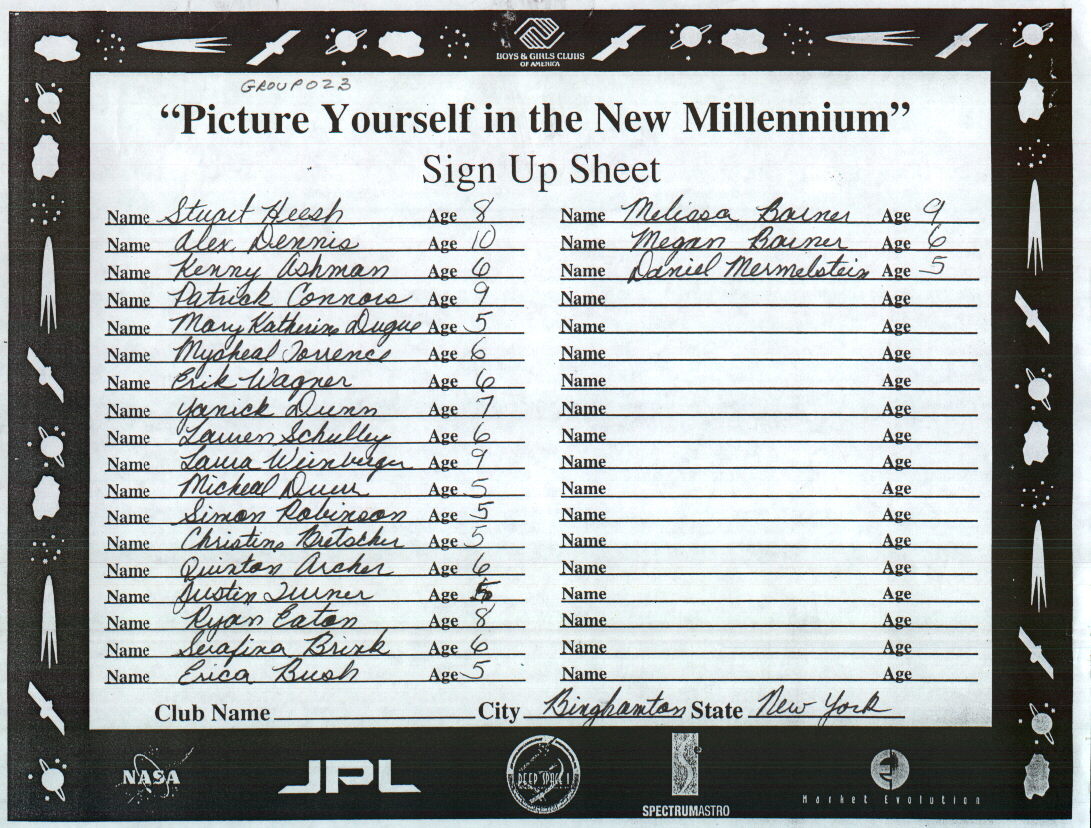 BOYS & GIRLS CLUBS
OF AMERICA
GROUP 023
“Picture Yourself in the New Millennium”
Sign Up Sheet
Name Stuart Heesh Age 8
Name Alex Dennis Age 10
Name Kenny Ashman Age 6
Name Patrick Connors Age 9
Name Mary Katherine Dugue Age 5
Name Mycheal Torrence Age 6
Name Erik Wagner Age 6
Name Yanick Dunn Age 7
Name Lauren Schulley Age 6
Name Laura Weinberger Age 9
Name Micheal Age 5
Name Simon Robinson Age 5
Name Christine Bretscher Age 5
Name Quinton Archer Age 6
Name Justin Turner Age 5
Name Ryan Eaton Age 8
Name Serafina Brink Age 6
Name Erica Bush Age 5
Name Melissa Barner Age 9
Name Megan Barner Age 6
Name Daniel Mermelstein Age 5
Name Age
Name Age
Name Age
Name Age
Name Age
Name Age
Name Age
Name Age
Name Age
Name Age
Name Age
Name Age
Name Age
Name Age
Name Age
Club Name City Binghamton State New York
NASA
JPL
DEEP SPACE 1
SPECTRUMASTRO
Market Evolution